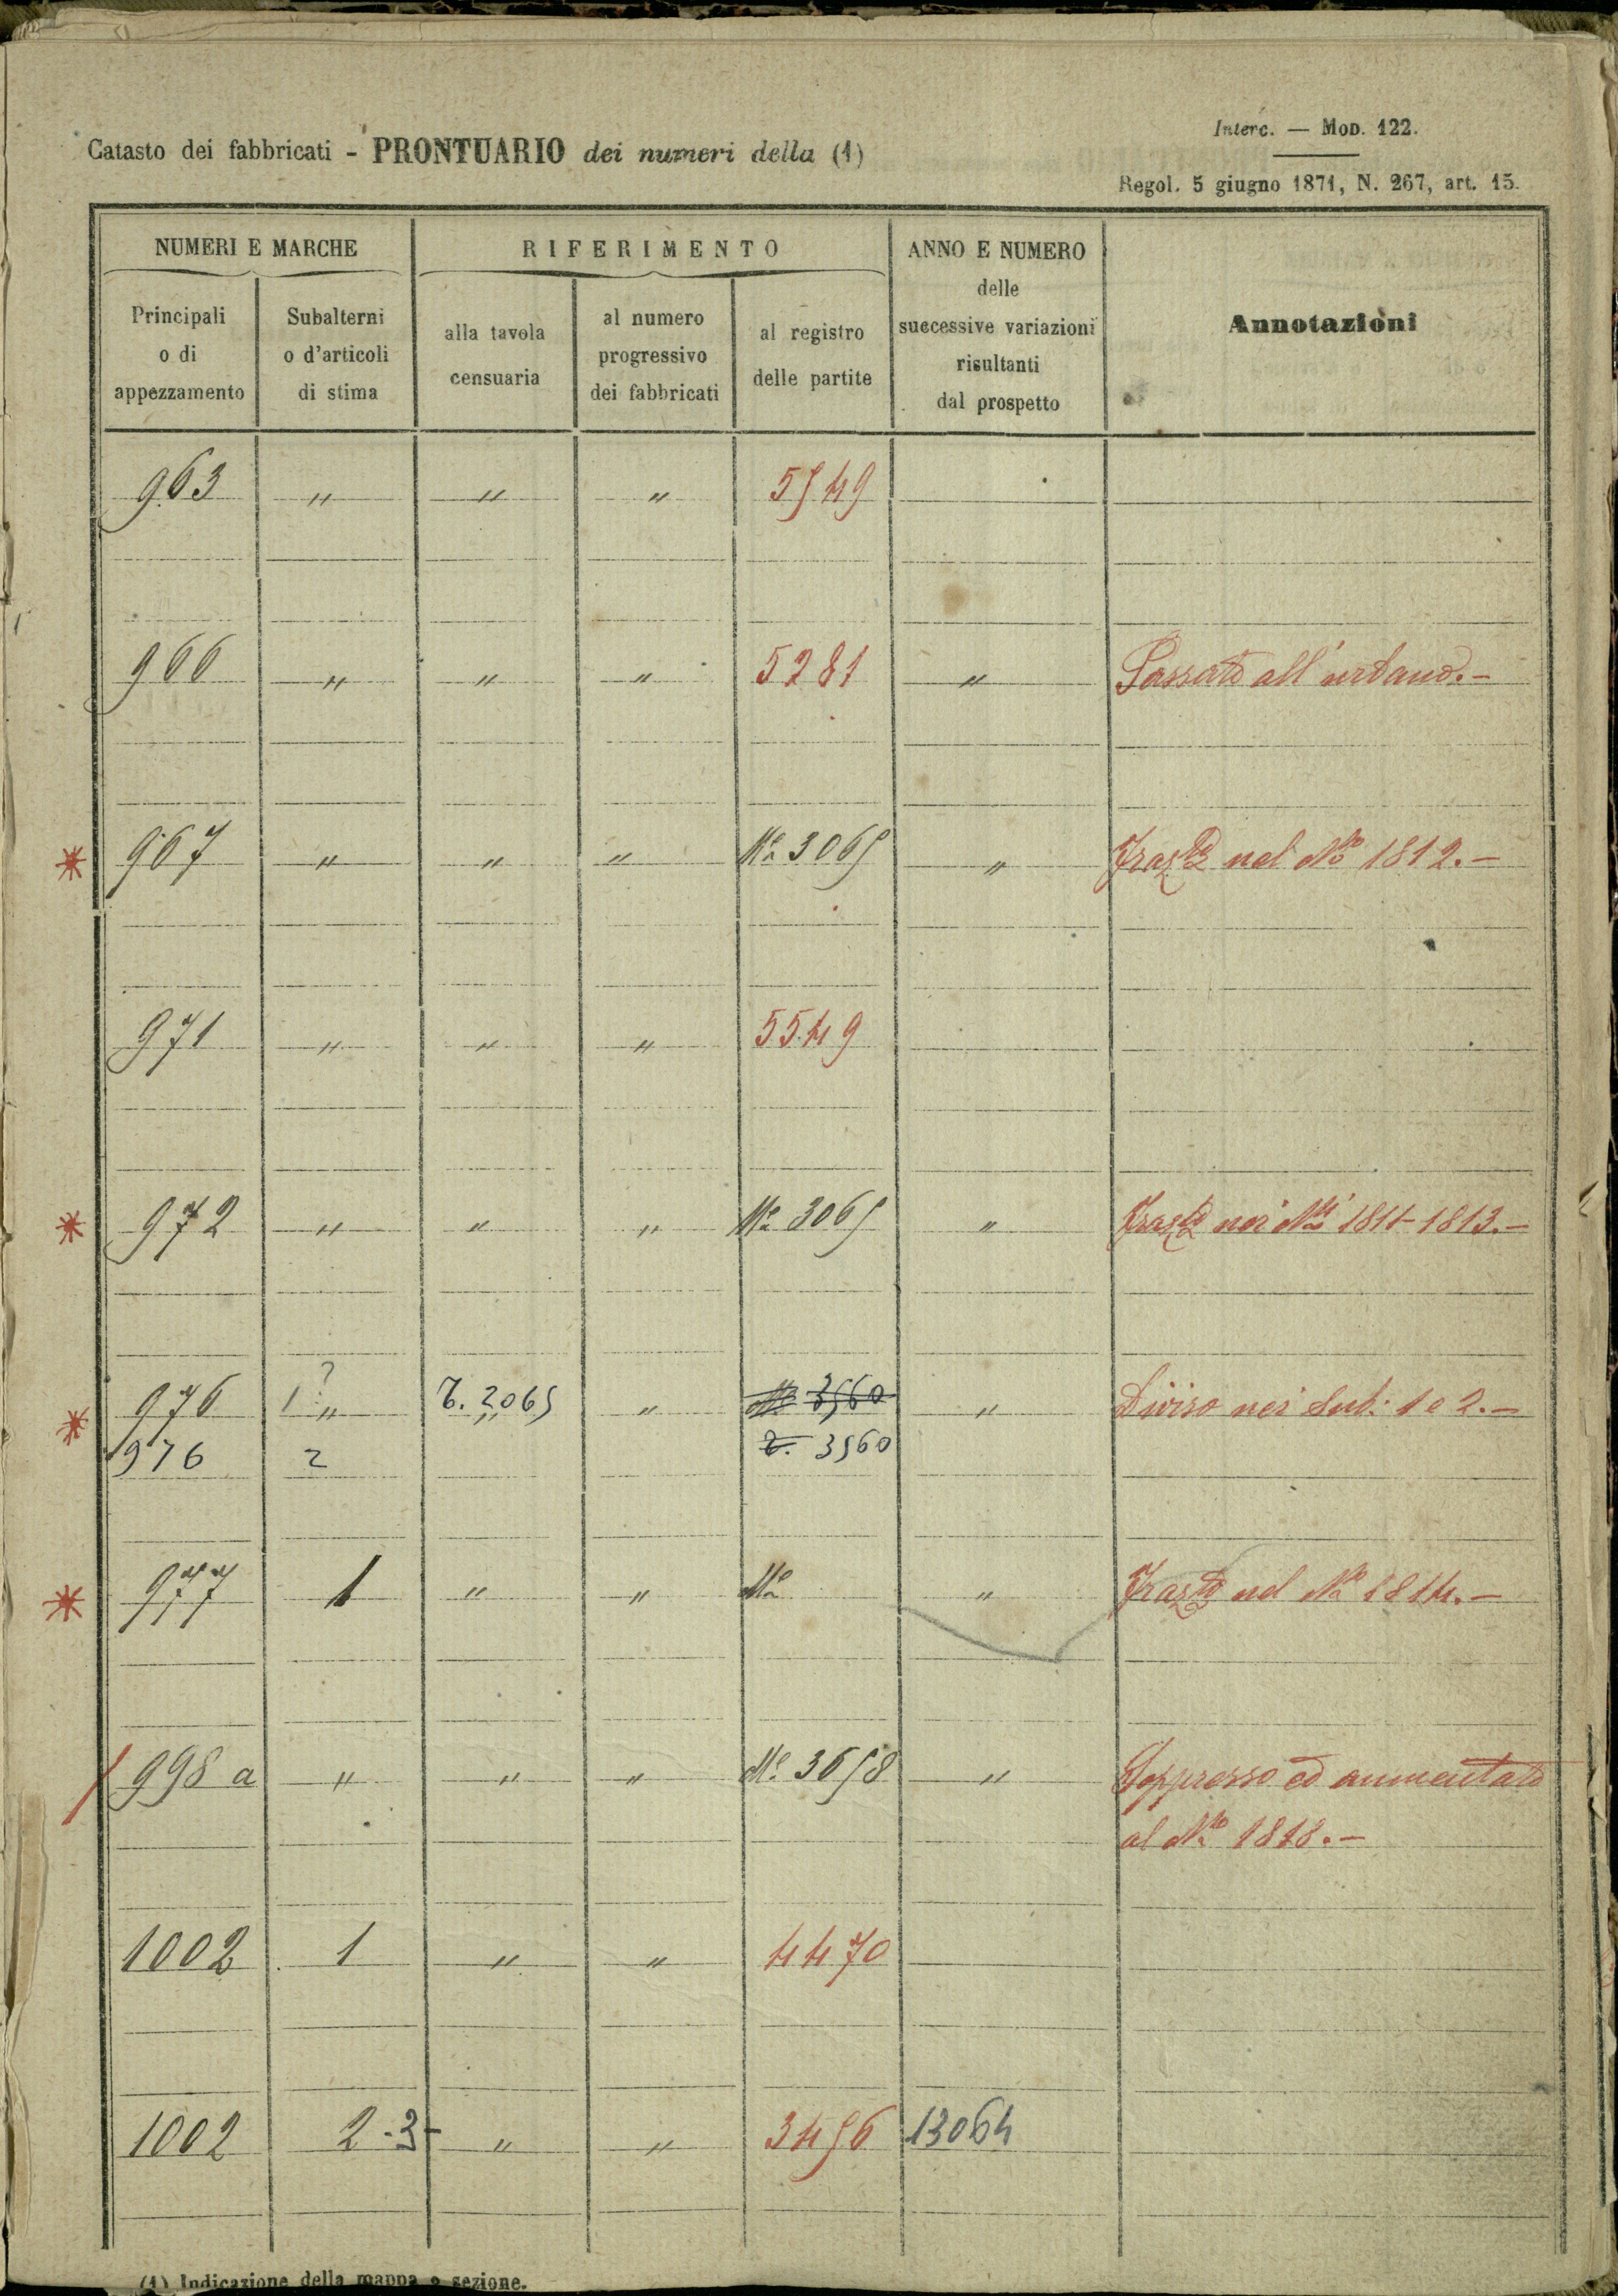 Interc. — MOD. 122.
Catasto dei fabbricati - PRONTUARIO dei numeri della (1)
Regol. 5 giugno 1871, N. 267, art. 15.
NUMERI E MARCHE RIFERIMENTO ANNO E NUMERO delle successive variazioni risultanti dal prospetto Annotazioni
Principali o di appezzamento Subalterni o d'articoli di stima alla tavola censuaria al numero progressivo dei fabbricati al registro delle partite
963 " " " 5549
966 " " " 5281 " Passato all'urbano. -
* 967 " " " No 3065 " nel No 1812. -
971 " " " 5549
* 972 " " " No 3065 " nei Ni 1811-1813. -
* 976 1 ? " 2065 " 3560 " Diviso nei Sub: 1 e 2. -
976 2 3560
* 977 1 " " No " nel No 1814. -
/ 998 a " " " No 3658 " Soppresso ed aumentato
al No 1818. -
1002 1 " " 4470
1002 2-3- " " 3456 13064
(1) Indicazione della mappa o sezione.